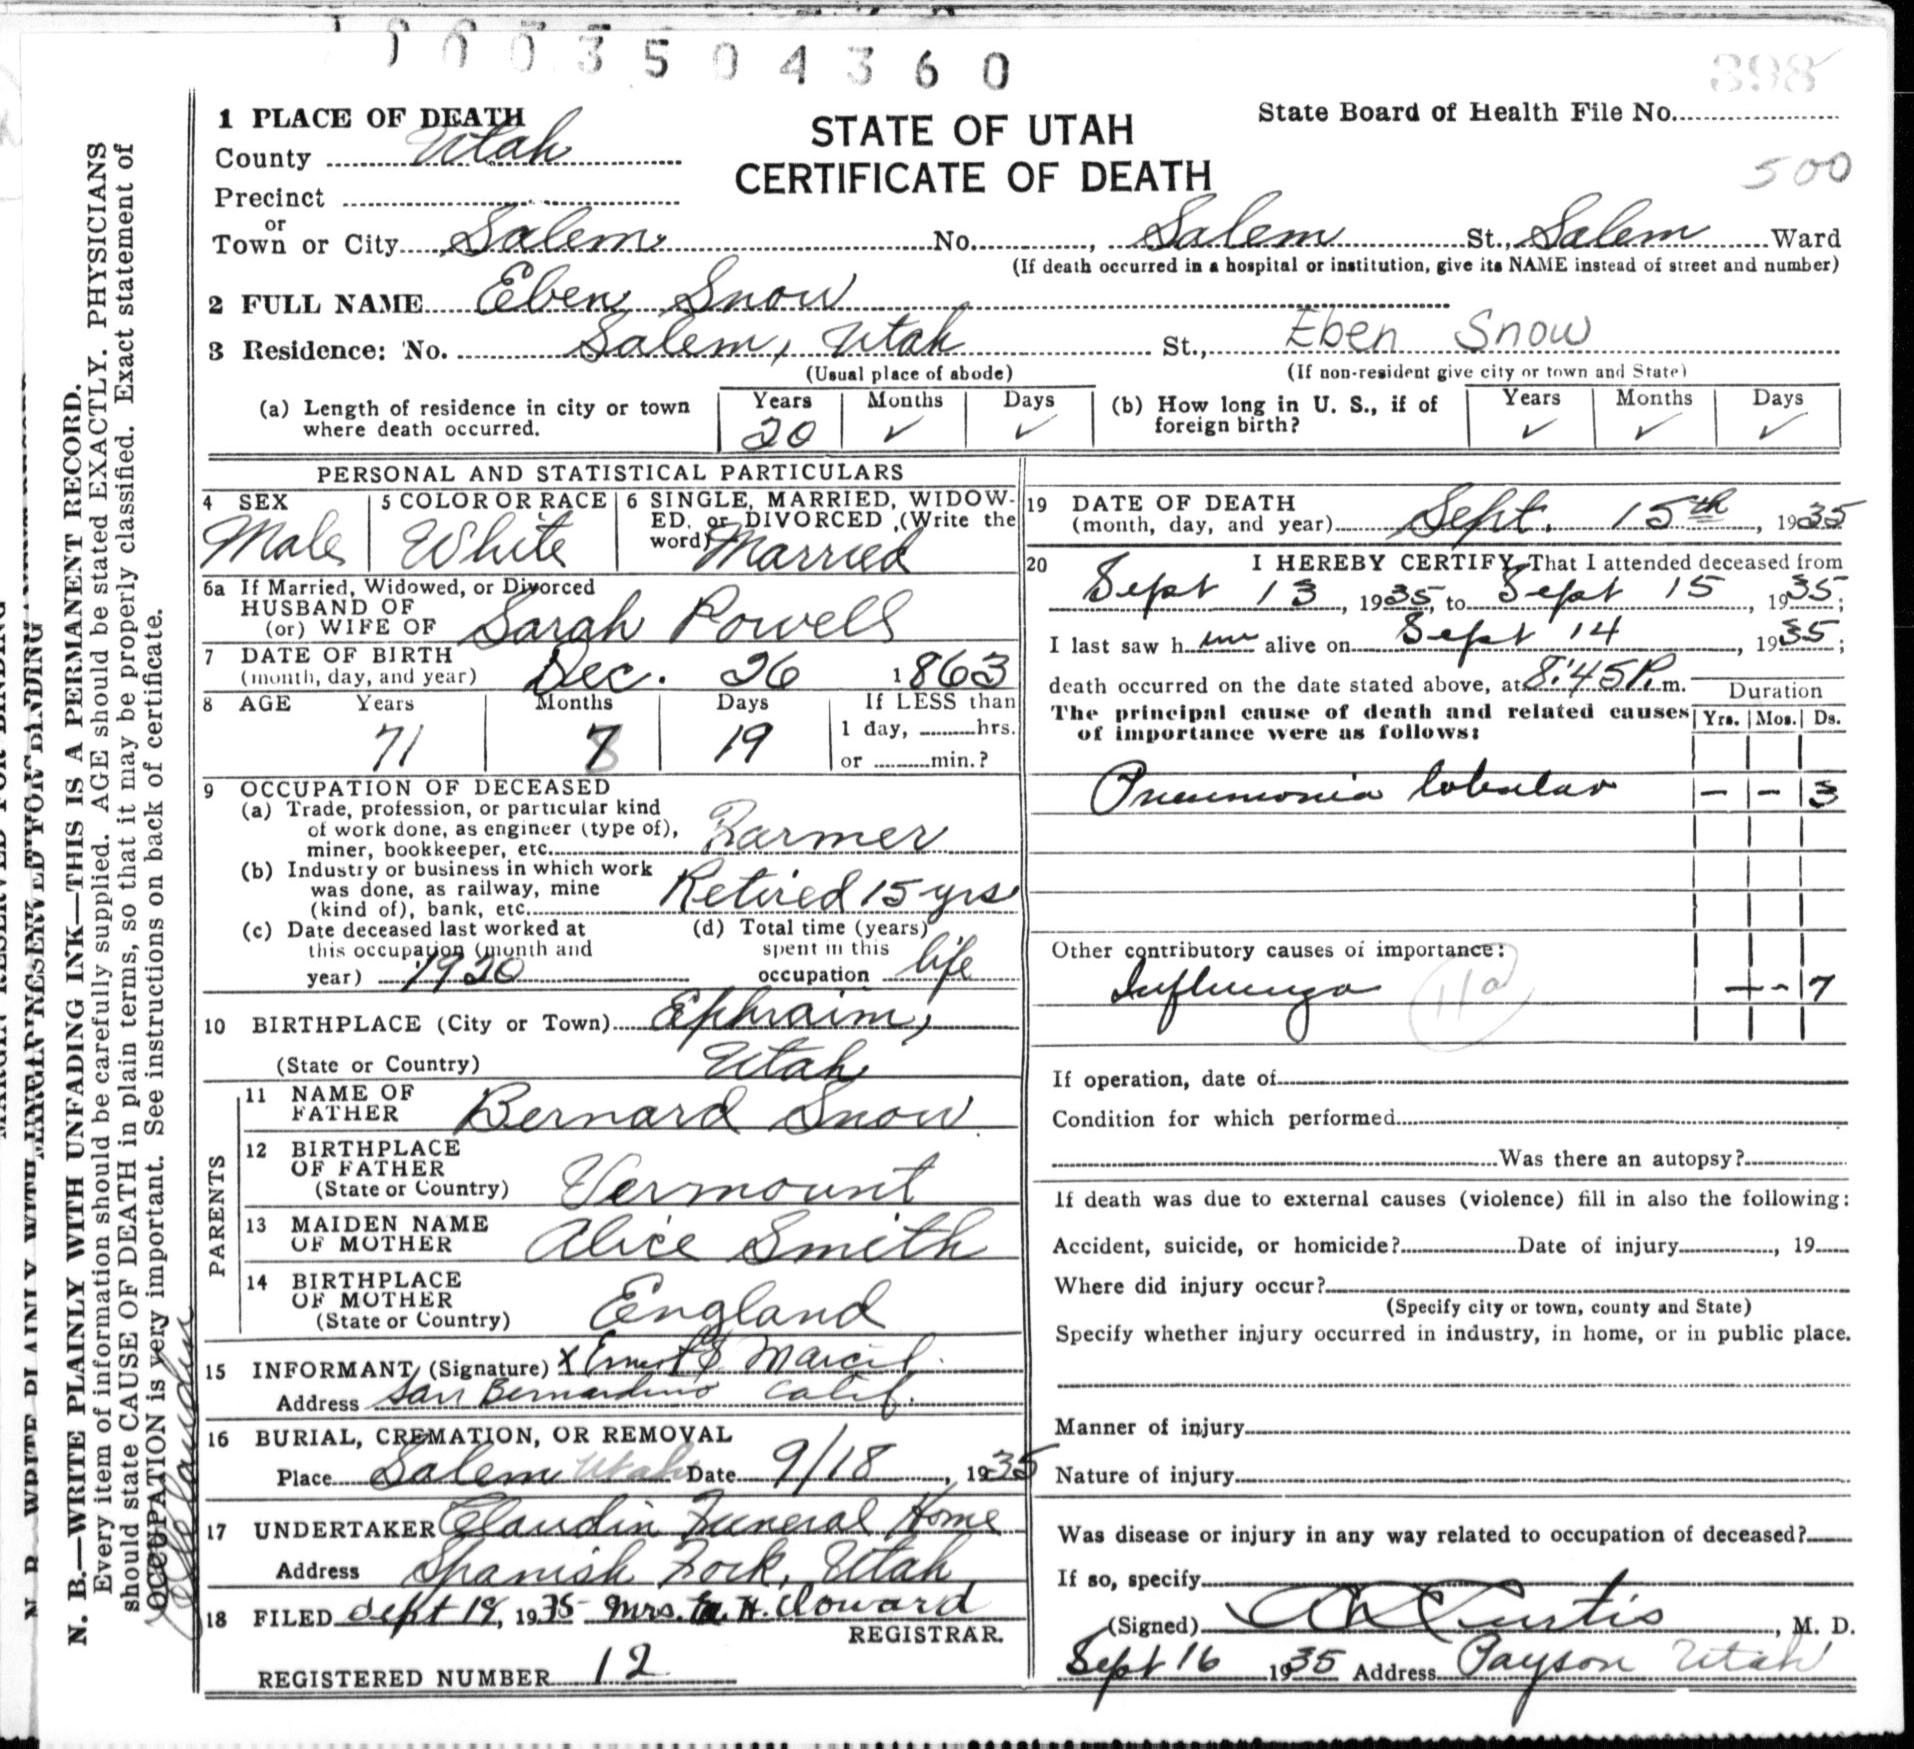 1003504360
398
1 PLACE OF DEATH
STATE OF UTAH
CERTIFICATE OF DEATH
State Board of Health File No.
500
County Utah
Precinct
or
Town or City Salem No. , Salem St., Salem Ward
(If death occurred in a hospital or institution, give its NAME instead of street and number)
2 FULL NAME Eben Snow
3 Residence: No. Salem, Utah St., Eben Snow
(Usual place of abode) (If non-resident give city or town and State)
(a) Length of residence in city or town where death occurred. Years 20 Months ✓ Days ✓
(b) How long in U. S., if of foreign birth? Years ✓ Months ✓ Days ✓
PERSONAL AND STATISTICAL PARTICULARS
4 SEX Male
5 COLOR OR RACE White
6 SINGLE, MARRIED, WIDOWED, or DIVORCED (Write the word) Married
6a If Married, Widowed, or Divorced
HUSBAND OF
(or) WIFE OF Sarah Powell
7 DATE OF BIRTH
(month, day, and year) Dec. 26 1863
8 AGE Years Months Days If LESS than
71 8 19 1 day, hrs.
or min.?
9 OCCUPATION OF DECEASED
(a) Trade, profession, or particular kind
of work done, as engineer (type of),
miner, bookkeeper, etc. Farmer
(b) Industry or business in which work
was done, as railway, mine
(kind of), bank, etc. Retired 15 yrs
(c) Date deceased last worked at
this occupation (month and
year) 1920
(d) Total time (years)
spent in this
occupation life
10 BIRTHPLACE (City or Town) Ephraim,
(State or Country) Utah
PARENTS
11 NAME OF
FATHER Bernard Snow
12 BIRTHPLACE
OF FATHER
(State or Country) Vermount
13 MAIDEN NAME
OF MOTHER Alice Smith
14 BIRTHPLACE
OF MOTHER
(State or Country) England
15 INFORMANT (Signature) X Ernest
Address San Bernardino Calif.
16 BURIAL, CREMATION, OR REMOVAL
Place Salem Utah Date 9/18, 1935
17 UNDERTAKER Claudin Funeral Home
Address Spanish Fork, Utah
18 FILED Sept 19, 1935 Mrs. H.
REGISTRAR.
REGISTERED NUMBER 12
19 DATE OF DEATH
(month, day, and year) Sept. 15th, 1935
20 I HEREBY CERTIFY, That I attended deceased from
Sept 13, 1935, to Sept 15, 1935;
I last saw him alive on Sept 14, 1935;
death occurred on the date stated above, at 8:45 P. m.
Duration
The principal cause of death and related causes Yrs. Mos. Ds.
of importance were as follows:
Pneumonia lobular - - 3
Other contributory causes of importance:
Influenza 11a - - 7
If operation, date of
Condition for which performed
Was there an autopsy?
If death was due to external causes (violence) fill in also the following:
Accident, suicide, or homicide? Date of injury , 19
Where did injury occur?
(Specify city or town, county and State)
Specify whether injury occurred in industry, in home, or in public place.
Manner of injury
Nature of injury
Was disease or injury in any way related to occupation of deceased?
If so, specify
(Signed) Curtis, M. D.
Sept 16 1935 Address Payson Utah
N. B.—WRITE PLAINLY WITH UNFADING INK—THIS IS A PERMANENT RECORD.
Every item of information should be carefully supplied. AGE should be stated EXACTLY. PHYSICIANS
should state CAUSE OF DEATH in plain terms, so that it may be properly classified. Exact statement of
OCCUPATION is very important. See instructions on back of certificate.